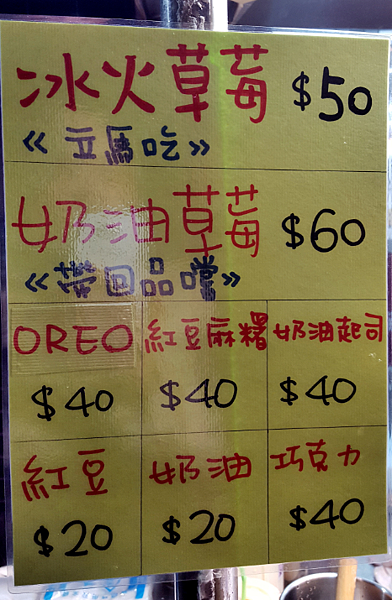 冰火草莓 $50
《立馬吃》
奶油草莓 $60
《帶回品嚐》
OREO 紅豆麻糬 奶油起司
$40 $40 $40
紅豆 奶油 巧克力
$20 $20 $40